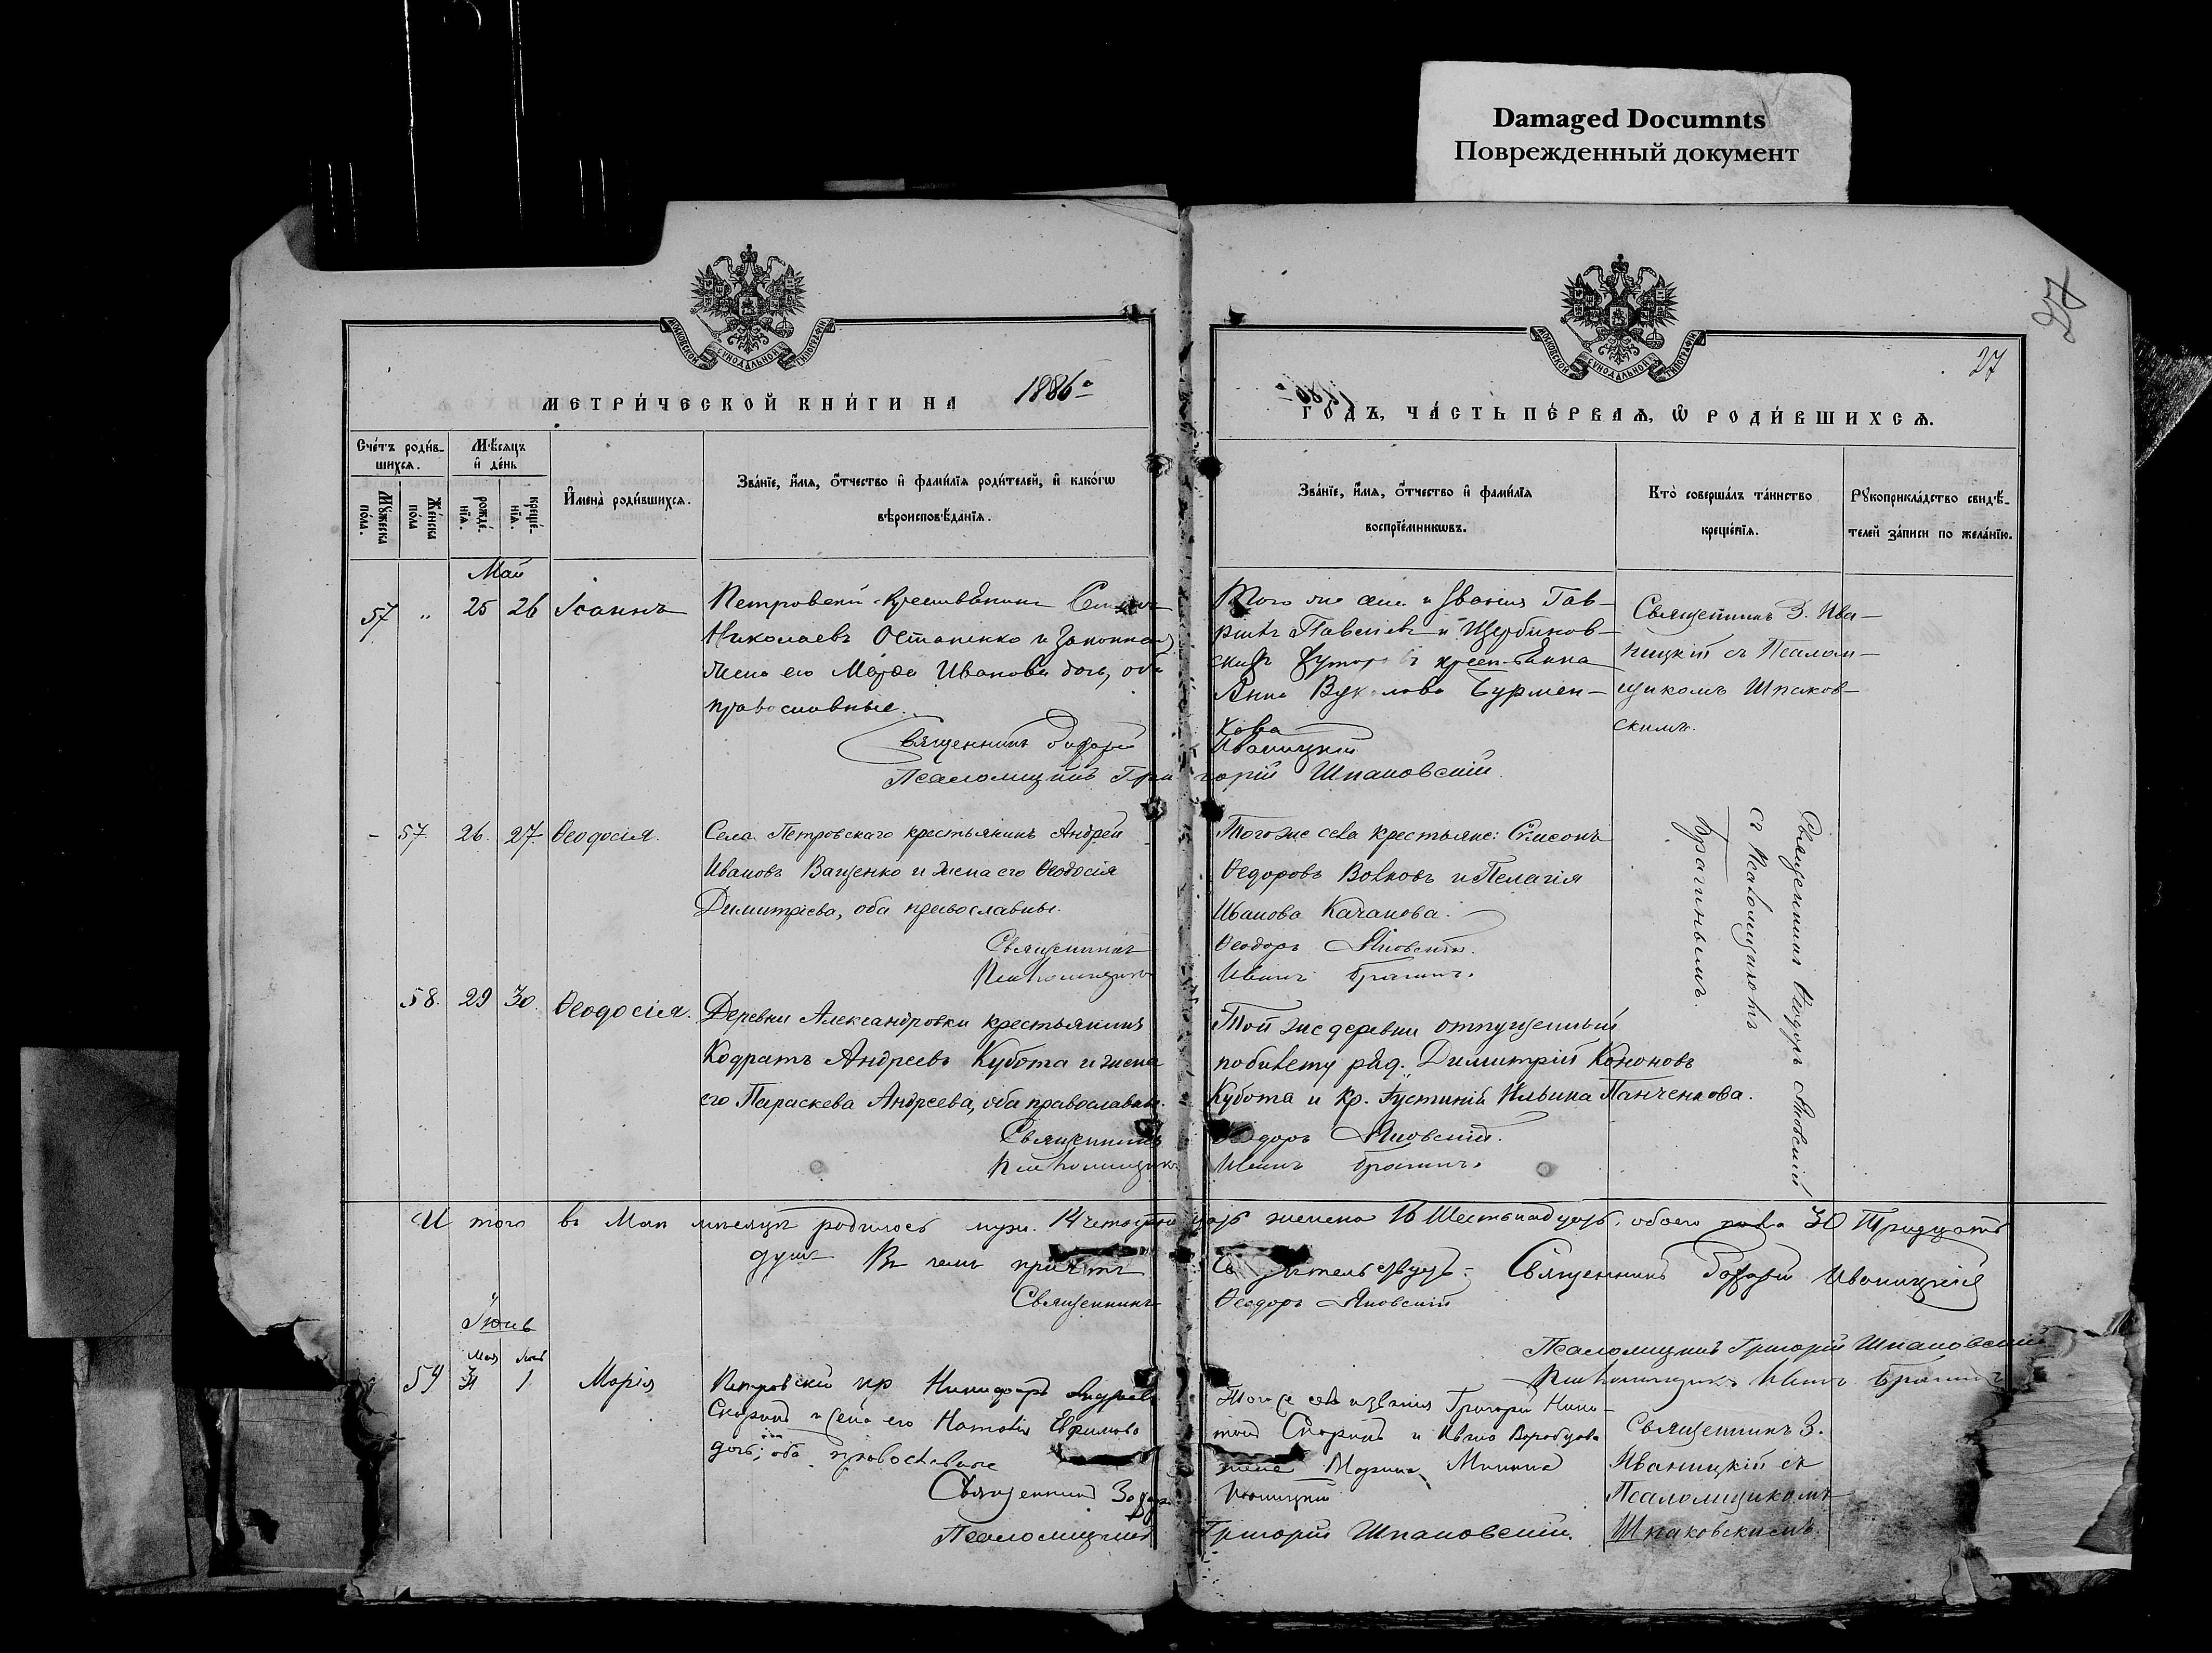 Damaged Documnts
Поврежденный документ
27
27
МОСКОВСКОЙ СѴНОДАЛЬНОЙ ТИПОГРАФІИ
МОСКОВСКОЙ СѴНОДАЛЬНОЙ ТИПОГРАФІИ
МЕТРИ́ЧЕСКОЙ КНИ́ГИ НА 1886
ГОДЪ, ЧА́СТЬ ПЕ́РВАѦ, Ѿ РОДИ́ВШИХСѦ.
Сче́тъ роди́в-
шихсѧ.
Мѣ́сѧцъ
и҆ де́нь
Мꙋ́жеска
по́ла.
Же́нска
по́ла
рожде́-
нїѧ.
креще́-
нїѧ.
И҆мена̀ роди́вшихсѧ.
Зва́нїе, и҆́мѧ, ѻ҆́тчество и҆ фами́лїѧ роди́телей, и҆ како́гѡ
вѣроисповѣ́данїѧ.
Зва́нїе, и҆́мѧ, ѻ҆́тчество и҆ фами́лїѧ
воспрїе́мникѡвъ.
Кто̀ соверша́лъ та́инство
креще́нїѧ.
Рꙋкоприкла́дство свидѣ́-
телей за́писи по жела́нїю.
Май
57 " 25 26 Іоаннъ
Петровскій крестьянинъ
Николаевъ Остапенко и законная
жена его Марѳа Иванова дочь, оба
православные.
Священникъ
Псаломщикъ Гри
Того же села и званія Гав-
ріилъ Павловъ и Щербинов-
скихъ хуторовъ крестьянка
Анна Вуколова Бурмен-
кова
Иваницкій
горій Шпаковскій.
Священникъ З. Ива-
ницкій съ Псалом-
щикомъ Шпаков-
скимъ.
- 57. 26. 27. Ѳеодосія.
Села Петровскаго крестьянинъ Андрей
Ивановъ Ващенко и жена его Ѳеодосія
Димитріева, оба православны.
Священникъ
Псаломщикъ
Того же села крестьяне: Симеонъ
Ѳедоровъ Волковъ и Пелагія
Иванова Качанова.
Ѳеодоръ Яновскій.
Иванъ Брагинъ.
Священникъ Ѳеодоръ Яновскій
съ Псаломщикомъ
Брагинымъ.
58. 29 30. Ѳеодосія.
Деревни Александровки крестьянинъ
Кодратъ Андреевъ Кубота и жена
его Параскева Андреева, оба православны.
Священникъ
Псаломщикъ
Той же деревни отпущенный
по билету ряд. Димитрій Кононовъ
Кубота и кр. Іустинія Ильина Панченкова.
Ѳеодоръ Яновскій.
Иванъ Брагинъ.
И того въ Маѣ мѣсяцѣ родилось муж. 14 четырнадцать женска 16 Шестьнадцать, обоего пола 30 Тридцать
душъ Въ чемъ причтъ свидѣтельствуетъ: Священникъ Иваницкій
Священникъ Ѳеодоръ Яновскій
Псаломщикъ Григорій Шпаковскій
Псаломщикъ Иванъ Брагинъ
Іюнь
Мая Іюня
59 31 1 Марія
Петровскій кр Никифоръ Андреевъ
Скоридъ и жена его Наталія Ефимова
дочь; оба православные
Священникъ
Псаломщикъ
Того же села и званія Григорій Ники-
жена Марина
Иваницкій
Григорій Шпаковскій.
Священникъ З.
Иваницкій съ
Псаломщикомъ
Шпаковскимъ.